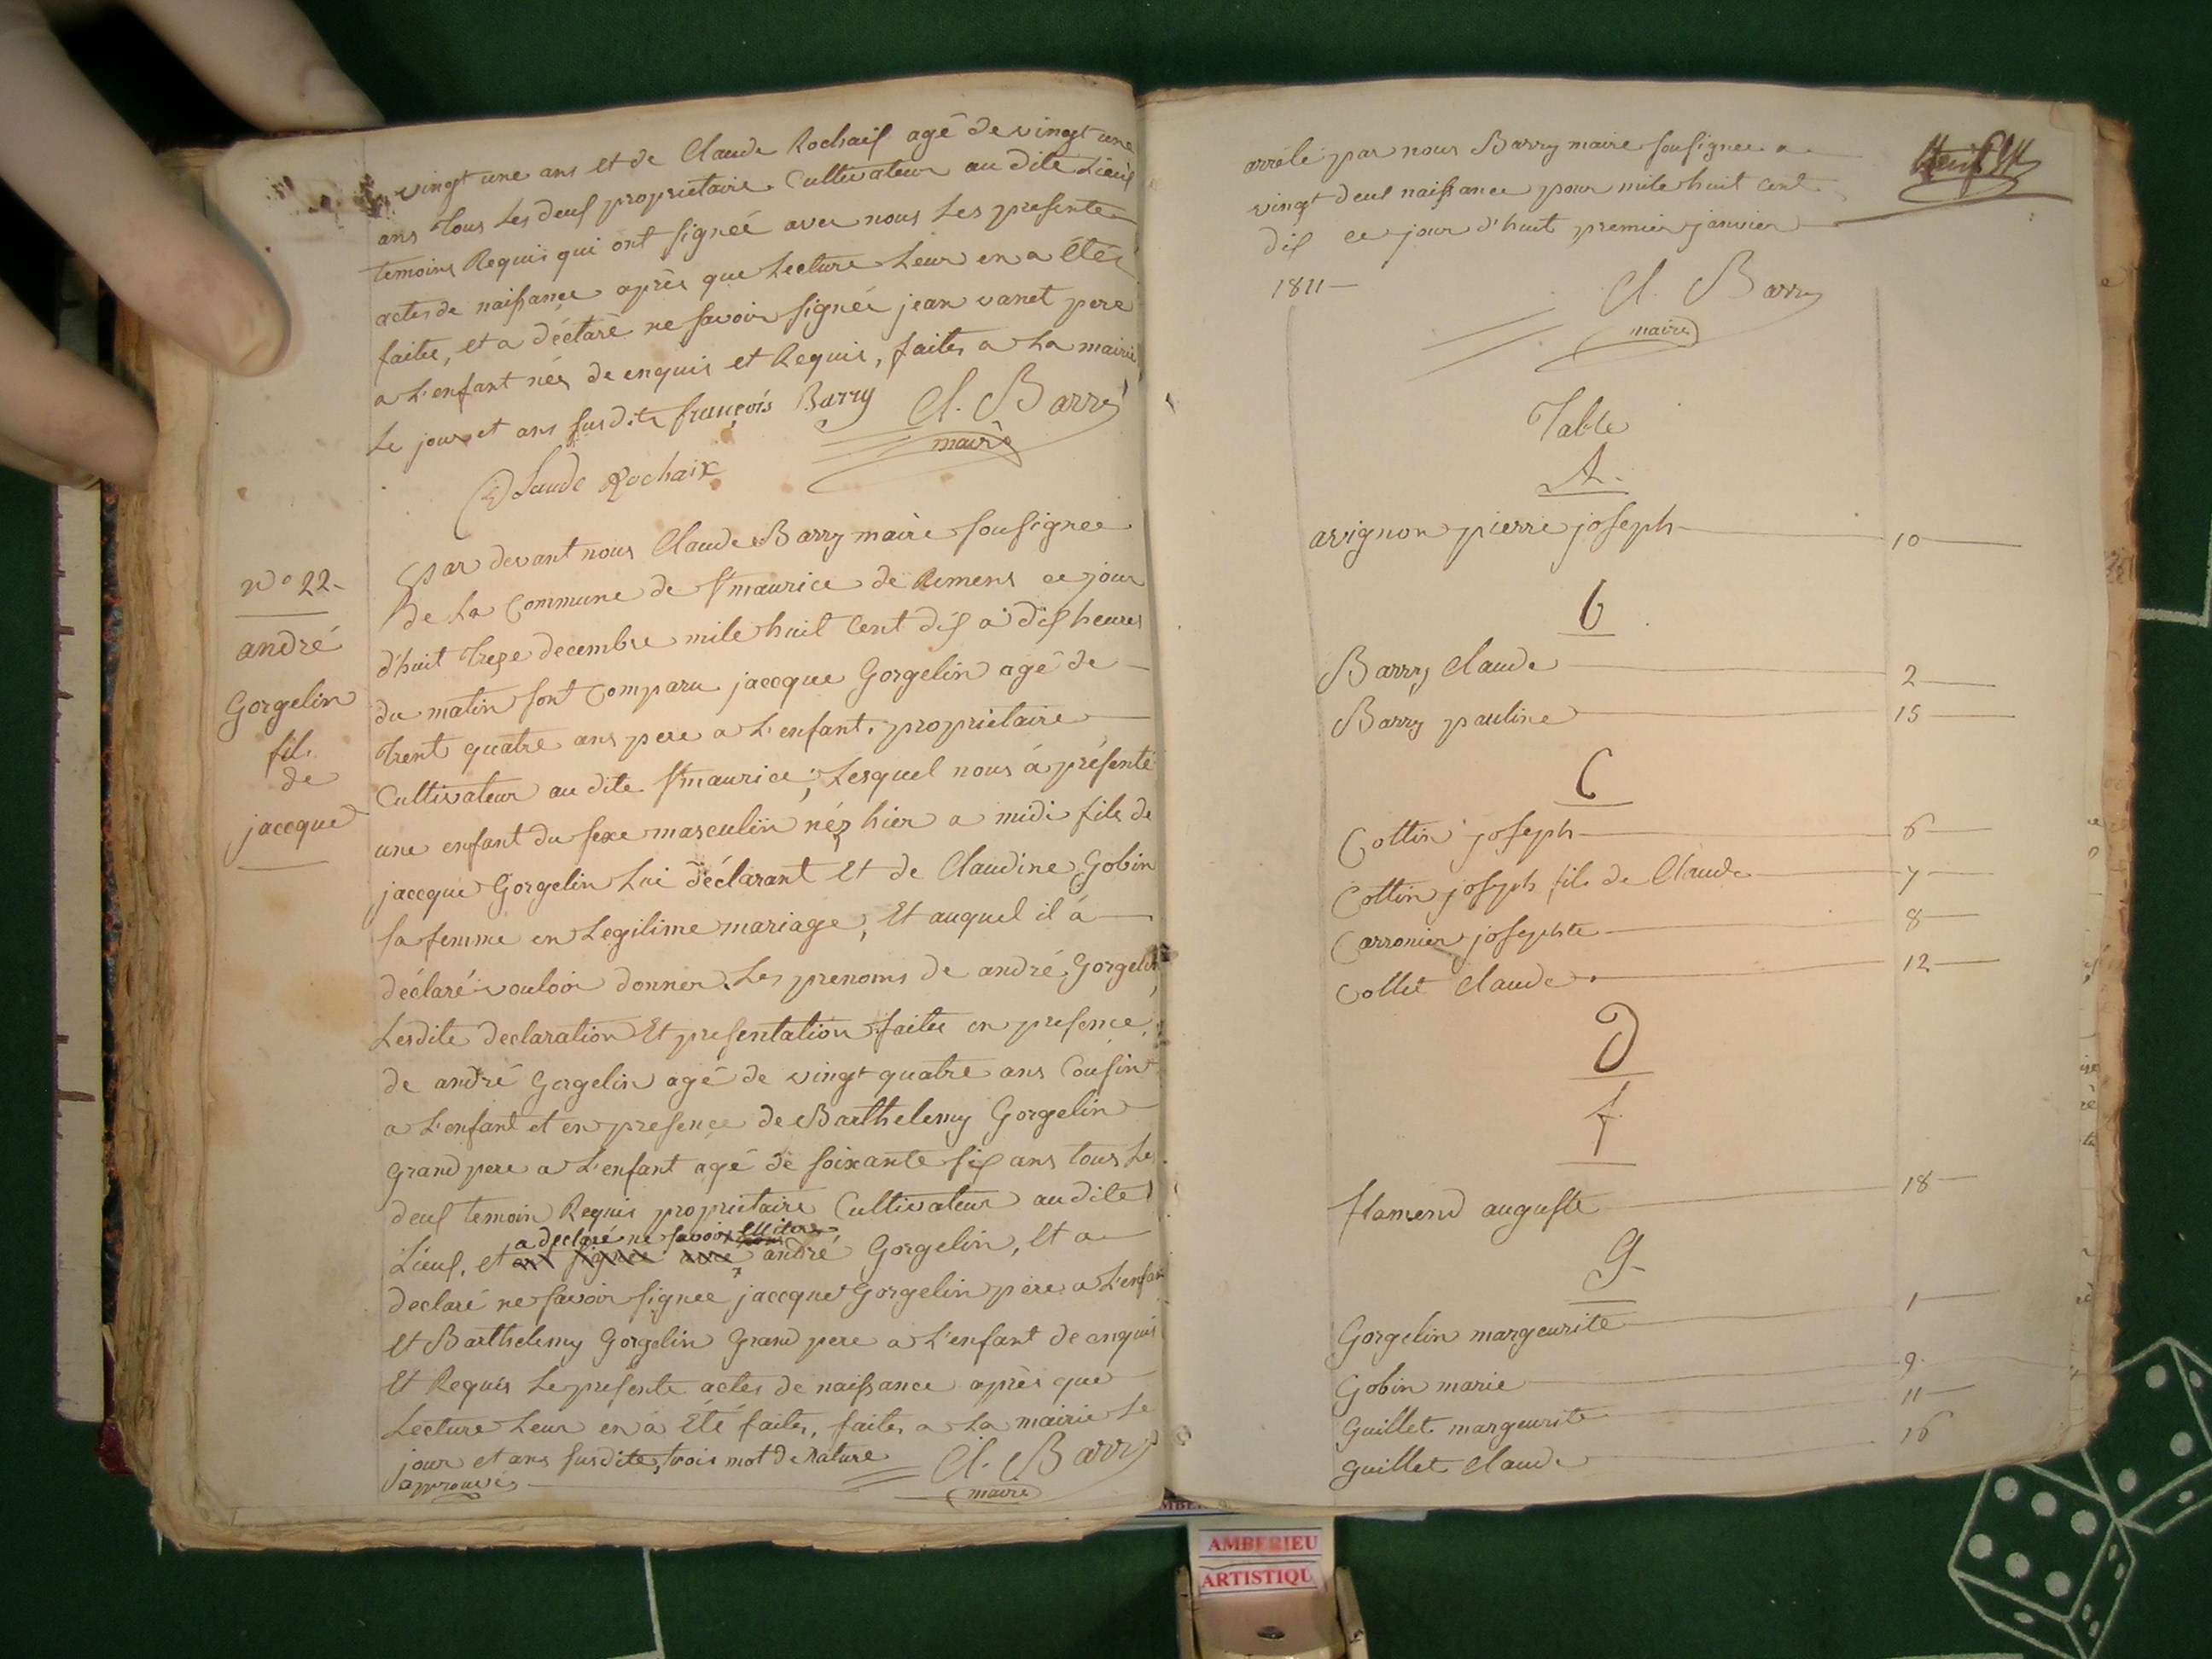 vingt une ans et de Claude Rochaix agé de vingt une
ans tous Les deux proprietaire Cultivateur au dite Lieux
temoins Requis qui ont signéé avec nous Les presente
actes de naissance après que Lecture Leur en a Étéé
faites, et a déclaré ne savoir signéé jean vanet pere
a L'enfant néé de enquis et Requis, faites a La mairie
Le jour et ans susdite françois Barry Cl. Barry
maire
Claude Rochaix
N° 22
andré
Gorgelin
fils
de
jaccque
Par devant nous Claude Barry maire sousignee
de La Commune de St maurice de Remens ce jour
d'huit treze decembre mile huit Cent dix a dix heures
du matin sont Comparu jaccque Gorgelin agé de
trent quatre ans pere a L'enfant, proprietaire
Cultivateur au dite St maurice, Lesquel nous á présenté
une enfant du sexe masculin néz hier a midi fils de
jaccque Gorgelin Lui déclarant et de Claudine Gobin
sa femme en Legitime mariage, Et auquel il á
déclaré vouloir donner Les prenoms de andré Gorgelin
Lesdite declaration Et presentation faites en presence
de andré Gorgelin agé de vingt quatre ans Cousin
a L'enfant et en presence de Barthelemy Gorgelin
Grand pere a L'enfant agé de soixante six ans tous Les
deux temoin Requis proprietaire Cultivateur au dite
a declaré ne savoir
Lieux, et ont signee avec andré Gorgelin, Et a
declaré ne savoir signee jaccque Gorgelin pere a L'enfan
et Barthelemy Gorgelin Grand pere a L'enfant de enquis
Et Requis Le presente actes de naissance après que
Lecture Leur en á Été faites, faites a La mairie Le
jour et ans susdite, trois mot de Rature Cl. Barry
approuvés maire
arrêlé par nous Barry maire sousignee a
vingt deux naissance pour mile huit cent
dix ce jour d'huit premier janvier
1811
Cl. Barry
maire
Table
A.
avignon pierre joseph 10
b
Barry Claude 2
Barry pauline 15
C
Cottin joseph 6
Cottin joseph fils de Claude 7
Carronier josephte 8
Collet Claude 12
D
f.
flamend auguste 18
G
Gorgelin margeurite 1
Gobin marie 9
Guillet margeurite 11
Guillet Claude 16
AMBERIEU
ARTISTIQU